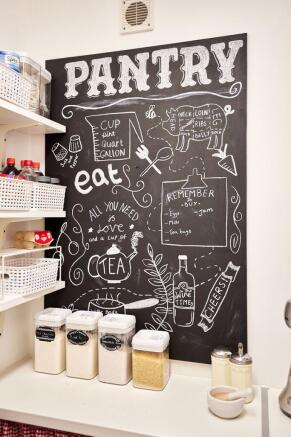 PANTRY
CUP
Pint
Quart
GALLON
LOIN
RIBS
eat
REMEMBER
TO
BUY-
- Eggs
- jam
- Milk
- Tea bags
ALL YOU NEED
IS
LOVE
and a CUP of
TEA
WINE
TIMES
CHEERS!